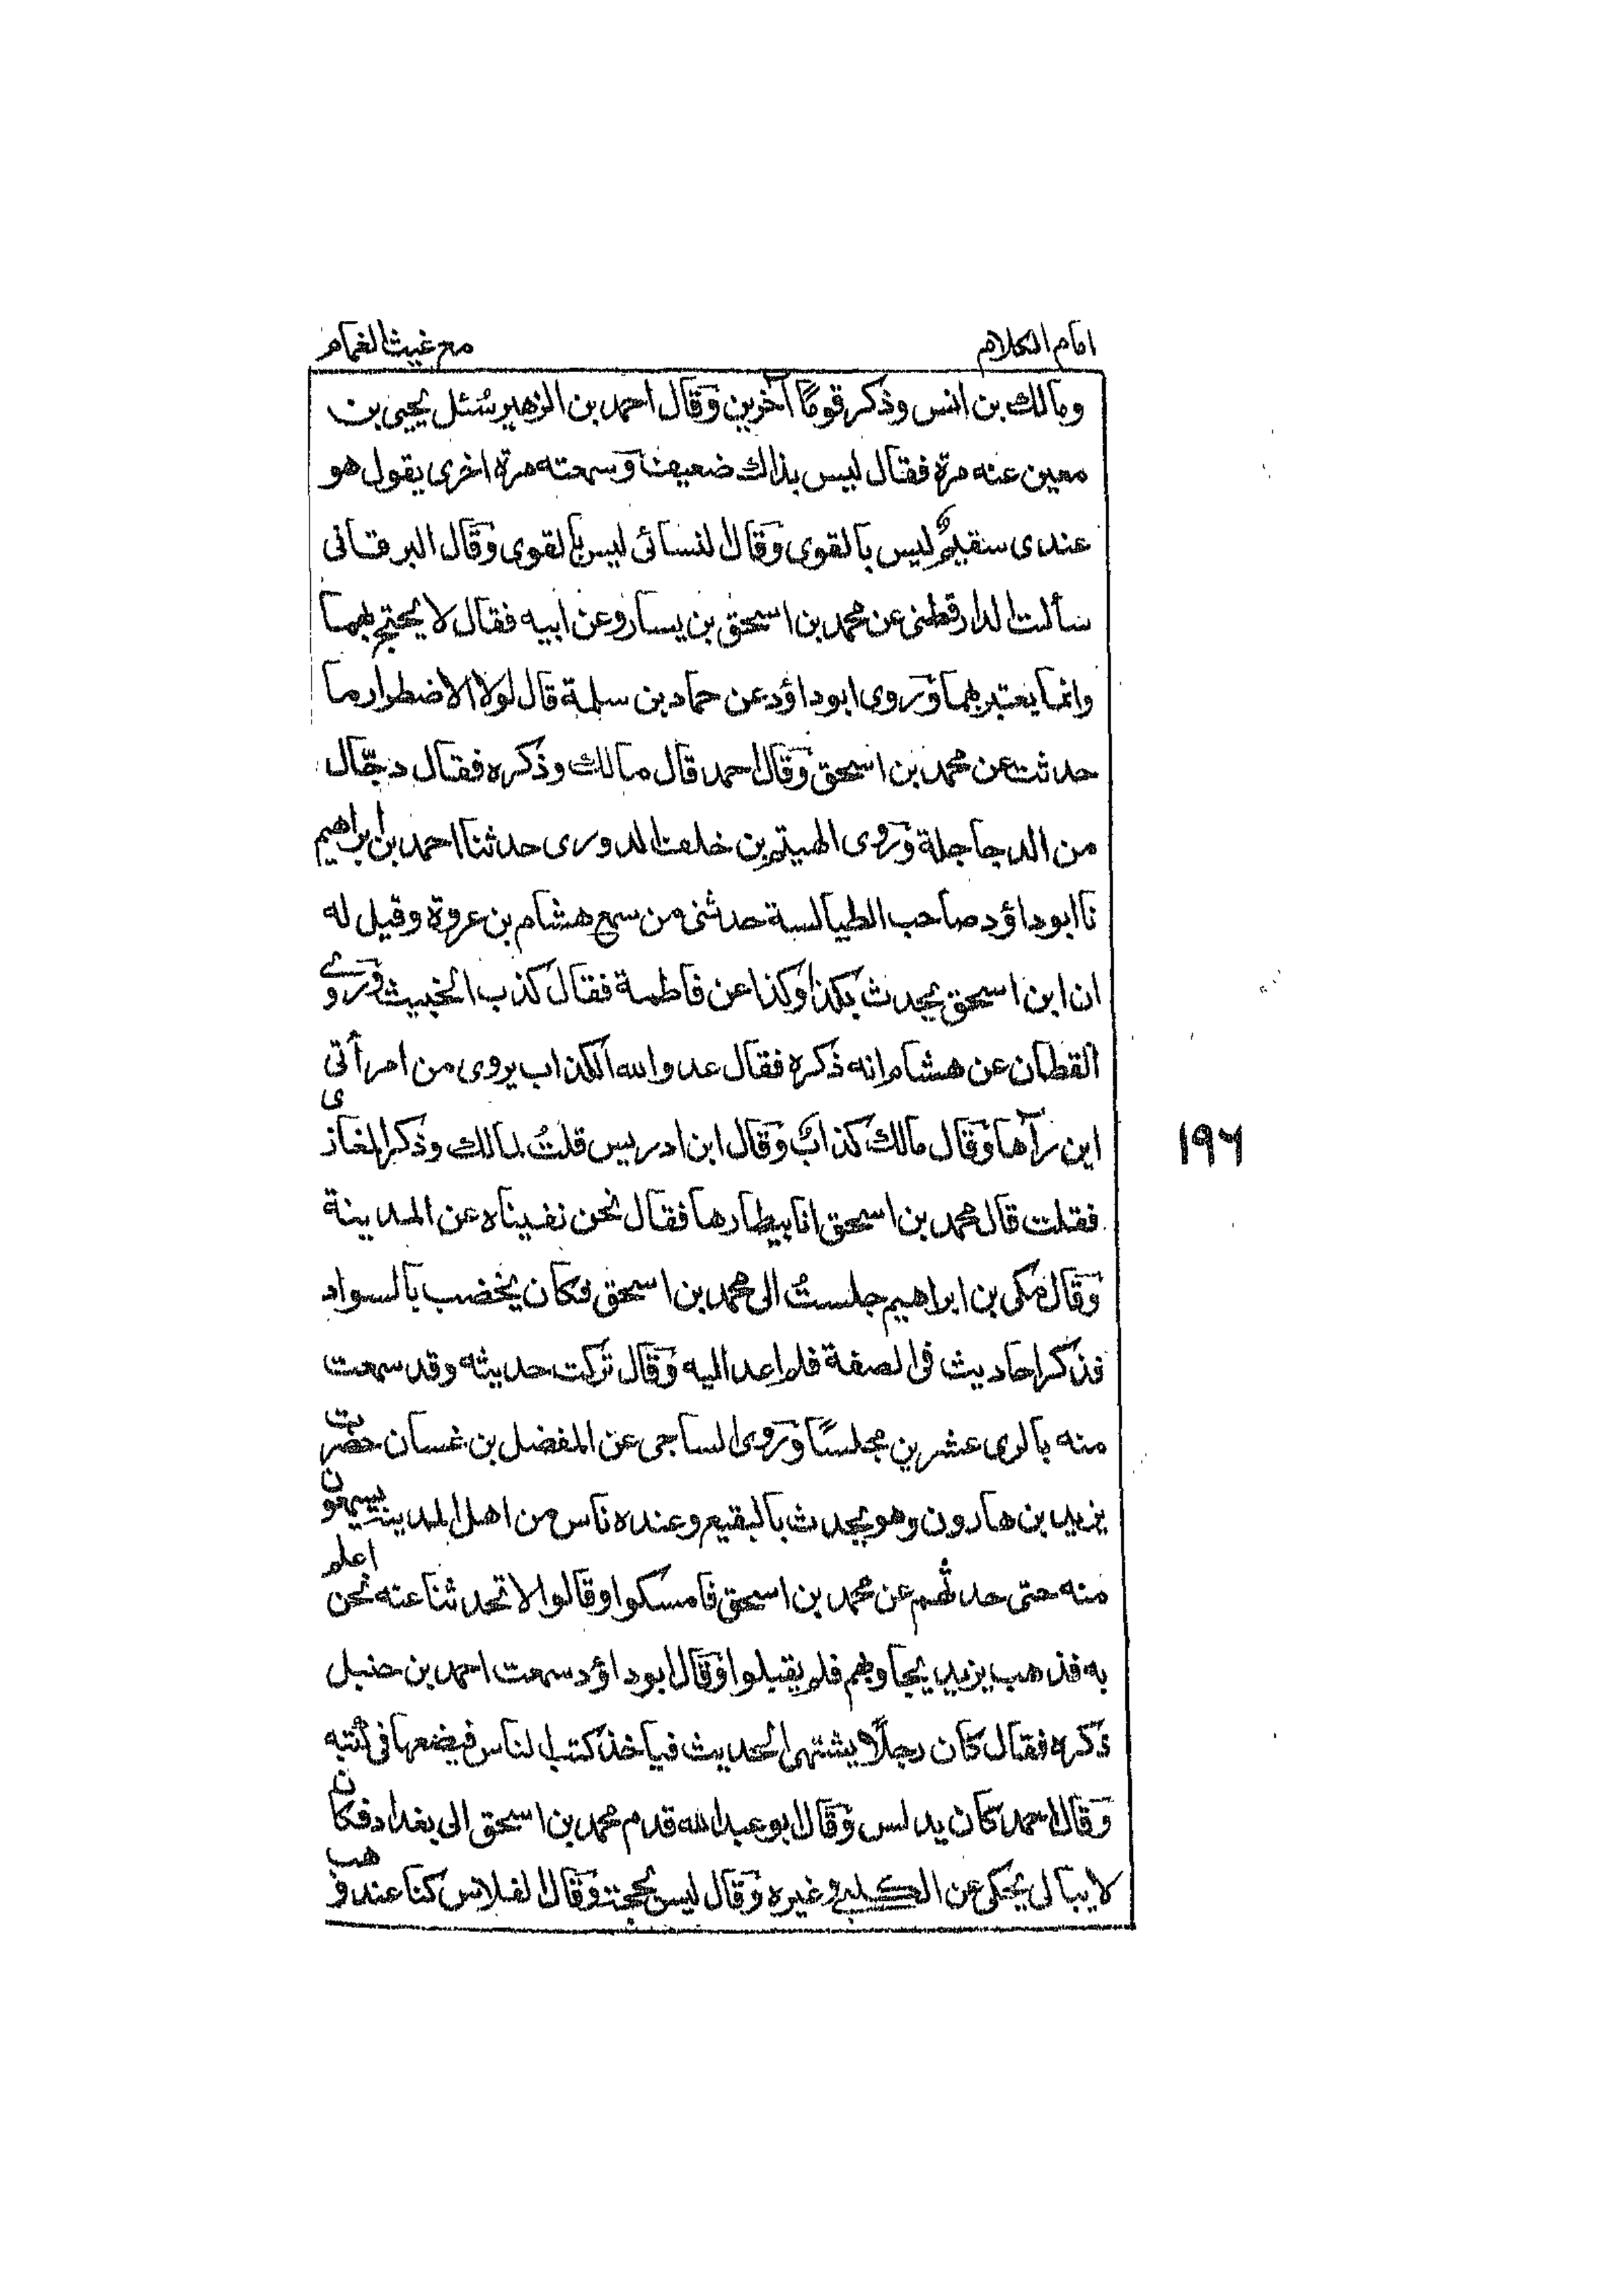 امام الكلام
مع غيث الغمام
ومالك بن انس وذكر قومًا آخرين وقال احمد بن الزهير سُئل يحيى بن
معين عنه مرة فقال ليس بذاك ضعيف وسمعته مرة اخرى يقول هو
عندى سقيمٌ ليس بالقوى وقال النسائى ليس بالقوى وقال البرقانى
سألت الدارقطنى عن محمد بن اسحق بن يسار وعن ابيه فقال لا يحتج بهما
وانما يعتبر بهما وروى ابو داؤد عن حماد بن سلمة قال لولا الاضطرار ما
حدثت عن محمد بن اسحق وقال احمد قال مالك وذكره فقال دجّال
من الدجاجلة وروى الهيثم بن خلف الدورى حدثنا احمد بن ابراهيم
نا ابو داؤد صاحب الطيالسة حدثنى من سمع هشام بن عروة وقيل له
ان ابن اسحق يحدث بكذا وكذا عن فاطمة فقال كذب الخبيث وروى
القطان عن هشام انه ذكره فقال عدو الله الكذاب يروى من امرأتى
اين رآها وقال مالك كذابٌ وقال ابن ادريس قلتُ لمالك وذكر المغازى
فقلت قال محمد بن اسحق انا بيطارها فقال نحن نفيناه عن المدينة
وقال مكى بن ابراهيم جلستُ الى محمد بن اسحق فكان يخضب بالسواد
فذكر احاديث فى الصفة فلم اعد اليه وقال تركت حديثه وقد سمعت
منه بالرى عشرين مجلسًا وروى الساجى عن المفضل بن غسان حضرت
يزيد بن هارون وهو يحدث بالبقيع وعنده ناس من اهل المدينة يسمعون
منه حتى حدثهم عن محمد بن اسحق فامسكوا وقالوا لا تحدثنا عنه نحن اعلم
به فذهب يزيد يحاولهم فلم يقبلوا وقال ابو داؤد سمعت احمد بن حنبل
ذكره فقال كان رجلًا يشتهى الحديث فياخذ كتب الناس فيضعها فى كتبه
وقال احمد كان يدلس وقال ابو عبد الله قدم محمد بن اسحق الى بغداد فكان
لا يبالى يحكى عن الكلبى وغيره وقال ليس بحجة وقال الفلاس كنا عند وهب
١٩٦